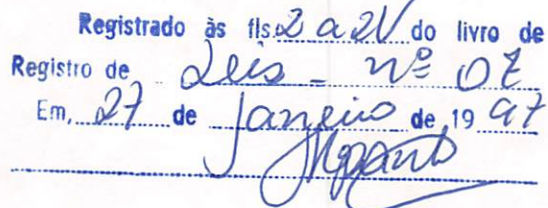 Registrado às fls 2 a 2V do livro de
Registro de Leis - nº 07
Em, 27 de Janeiro de 19 97